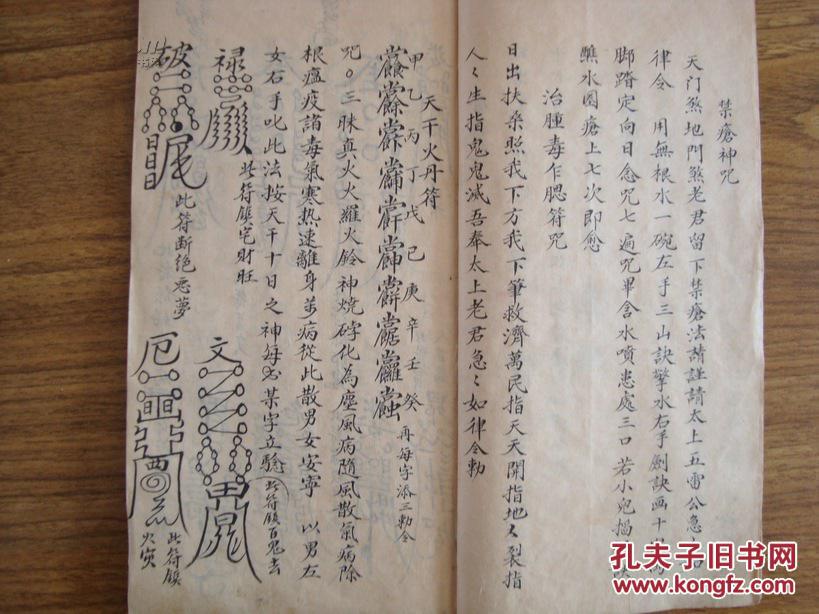 禁瘡神咒
天门煞地門煞老君留下禁瘡法請註請太上五雷公急
律令 用無根水一碗左手三山訣擎水右手劍訣画十
脚踏定向日念咒七遍咒畢含水噴患處三口 若小児
蘸水圈瘡上七次即愈
治腫毒乍腮符咒
日出扶桑照我下方我下筆救濟萬民指天天開指地〻裂指
人〻生指鬼鬼滅吾奉太上老君急〻如律令勅
天干火丹符
甲乙丙丁戊己庚辛壬癸 再每字添三勅令
咒。三昧真火火羅火鈴神燒碎化為塵風病隨風散氣病除
根瘟疫諸毒氣寒热速離身萬病從此散男女安寧 以男左
女右手叱此法按天干十日之神每書某字立驗 此符鎮百鬼去
禄 此符鎮宅財旺
文 鬼
破 日日日 尾 此符断绝悪夢
厄 西 此符鎮火灾
孔夫子旧书网
www.kongfz.com